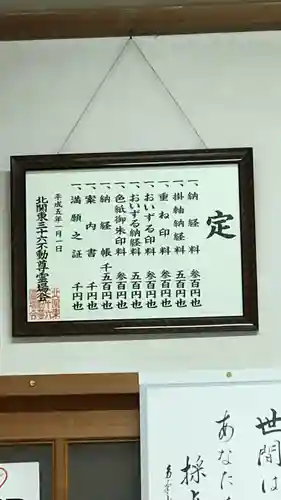 定
一、納経料 参百円也
一、掛軸納経料 五百円也
一、重ね印料 参百円也
一、おいずる印料 参百円也
一、おいずる納経料 五百円也
一、色紙御朱印料 参百円也
一、納経帳 千五百円也
一、案内書 千円也
一、満願之証 千円也
平成五年一月一日
北関東三十六不動尊霊場会
世間は
あなた